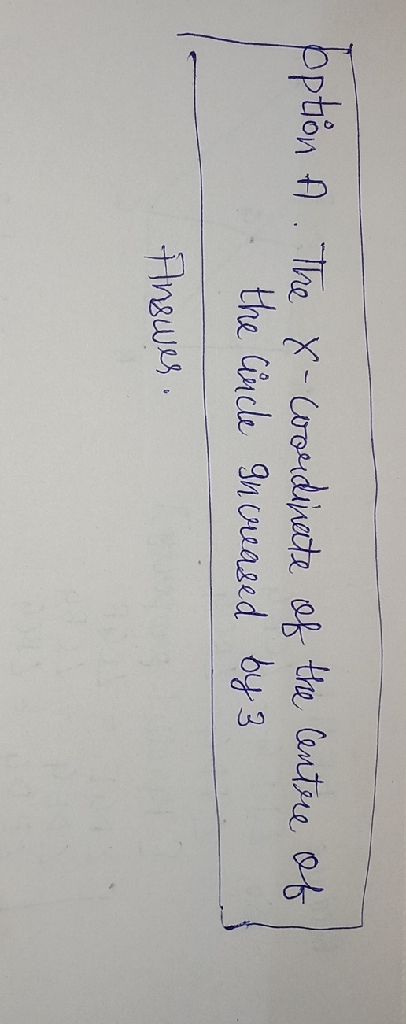 Option A. The X-Coordinate of the Centre of
the Circle Increased by 3
Answer.